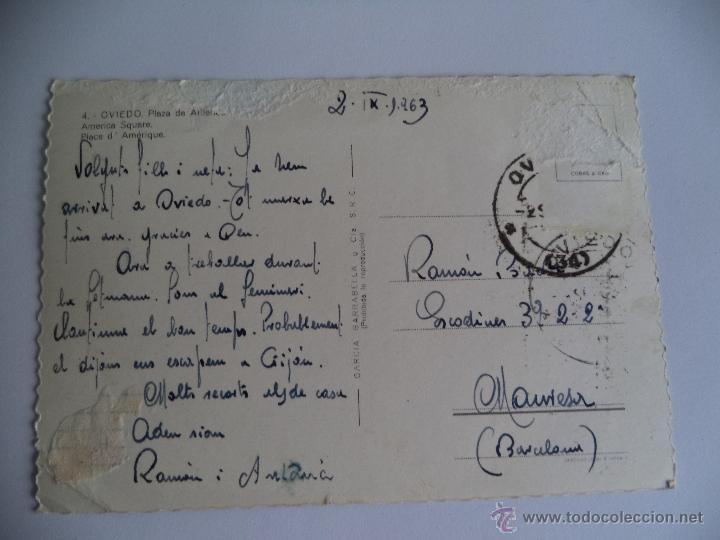 2 - IX - 1963
4. - OVIEDO. Plaza de
America Square.
Place d'Amérique.
CORAS & CIA
Volguts fills i nets: Ja hem
arrivat a Oviedo. - Tot marxa be
fins ara. gracies a Deu.
Ara a treballar durant
la setmana. Som al Seminari.
Continua el bon temps. Probablement
el dijous ens escapem a Gijón.
Molts recorts els de casa
Adeu siau
Ramón i
GARCIA GARRABELLA y Cía. S.R.C.
(Prohibida la reproducción)
OV
(34)
Ramón
Escodines 3º 2-2ª
Manresa
(Barcelona)
© www.todocoleccion.net